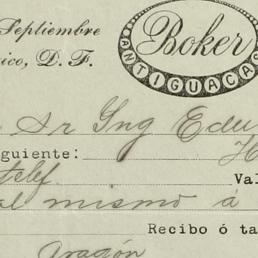 Septiembre
ico, D. F.
Boker
ANTIGUA CAS
Sr Ing Edu
guiente: H
telef Val
al mismo á
Recibo ó ta
Aragón